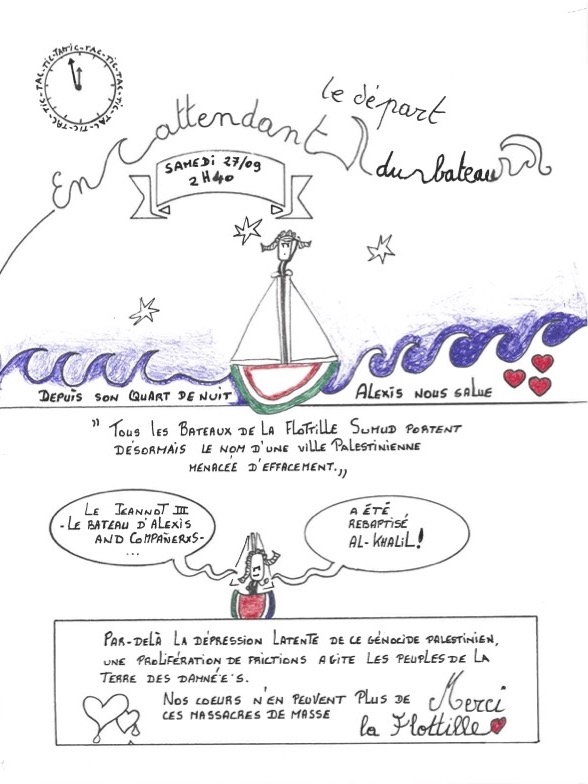 TIC-TAC-TIC-TAC-TIC-TAC-TIC-TAC-TIC-TAC-TIC-TAC
En attendant
le départ
du bateau
SAMEDI 27/09
2H40
DEPUIS SON QUART DE NUIT
ALEXIS NOUS SALUE
" TOUS LES BATEAUX DE LA FLOTTILLE SUMUD PORTENT
DÉSORMAIS LE NOM D'UNE VILLE PALESTINIENNE
MENACÉE D'EFFACEMENT. "
LE JEANNOT III
- LE BATEAU D'ALEXIS
AND COMPAÑERXS -
...
A ÉTÉ
REBAPTISÉ
AL-KHALIL!
PAR-DELÀ LA DÉPRESSION LATENTE DE CE GÉNOCIDE PALESTINIEN,
UNE PROLIFÉRATION DE FRICTIONS AGITE LES PEUPLES DE LA
TERRE DES DAMNÉ·E·S.
NOS COEURS N'EN PEUVENT PLUS DE
CES MASSACRES DE MASSE
Merci
la Flottille